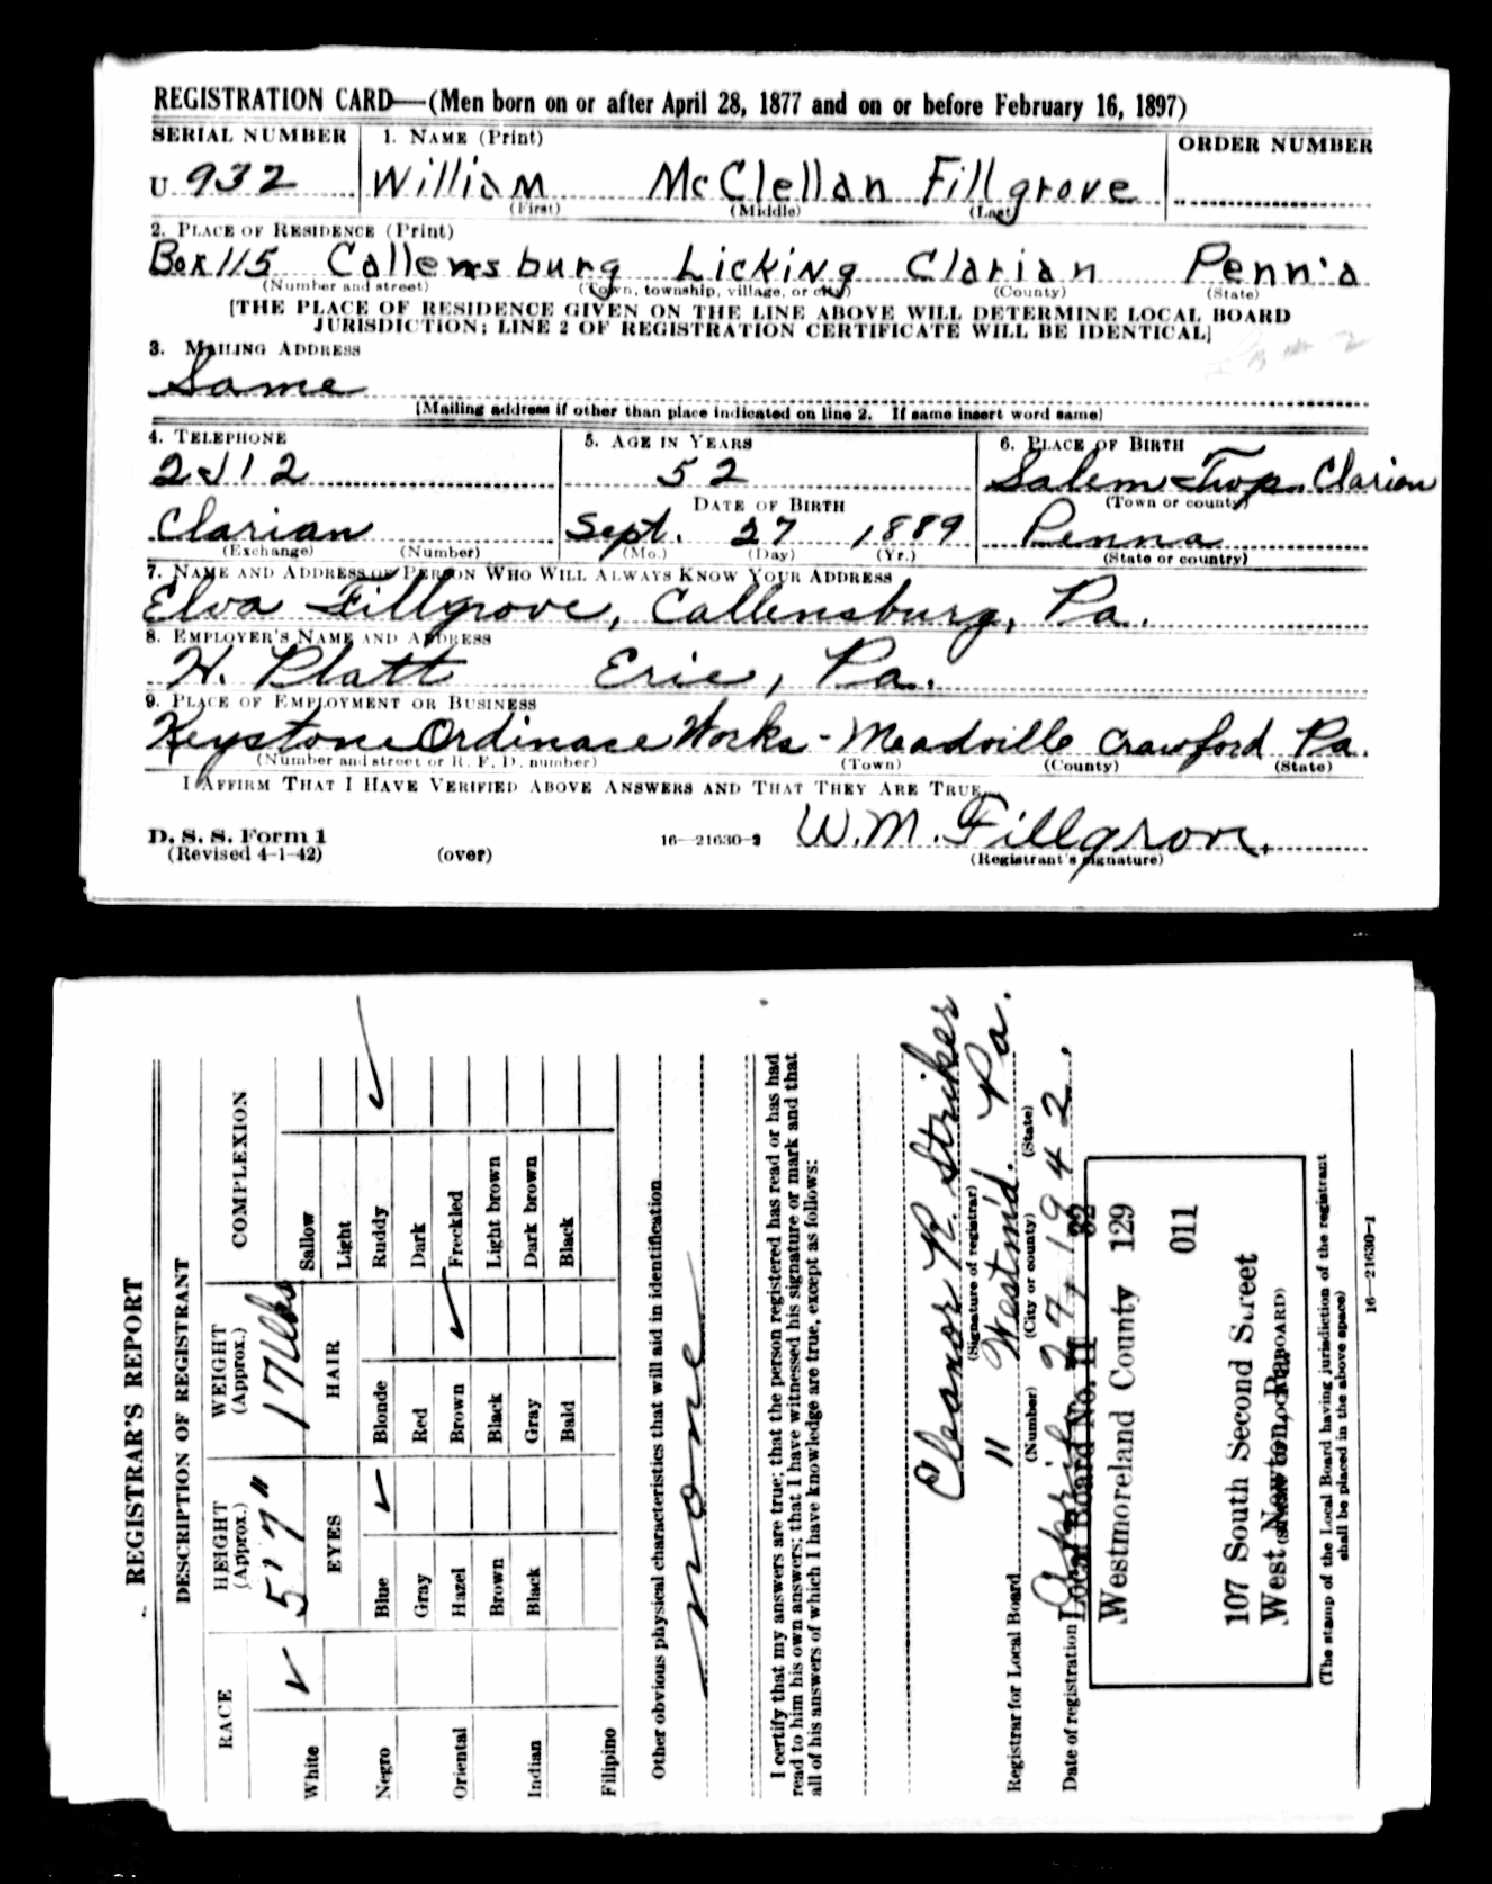 REGISTRATION CARD—(Men born on or after April 28, 1877 and on or before February 16, 1897)
SERIAL NUMBER 1. NAME (Print) ORDER NUMBER
U 932 William McClellan Fillgrove
(First) (Middle) (Last)
2. PLACE OF RESIDENCE (Print)
Box 115 Callemsburg Licking Clarian Penn'a
(Number and street) (Town, township, village, or city) (County) (State)
[THE PLACE OF RESIDENCE GIVEN ON THE LINE ABOVE WILL DETERMINE LOCAL BOARD
JURISDICTION; LINE 2 OF REGISTRATION CERTIFICATE WILL BE IDENTICAL]
3. MAILING ADDRESS
Same
[Mailing address if other than place indicated on line 2. If same insert word same]
4. TELEPHONE 5. AGE IN YEARS 6. PLACE OF BIRTH
2J12 52 Salem Twp. Clarion
DATE OF BIRTH (Town or county)
Clarian Sept. 27 1889 Penna
(Exchange) (Number) (Mo.) (Day) (Yr.) (State or country)
7. NAME AND ADDRESS OF PERSON WHO WILL ALWAYS KNOW YOUR ADDRESS
Elva Fillgrove, Callensburg, Pa.
8. EMPLOYER'S NAME AND ADDRESS
H. Platt Erie, Pa.
9. PLACE OF EMPLOYMENT OR BUSINESS
Keystone Ordinace Works - Meadville Crawford Pa.
(Number and street or R. F. D. number) (Town) (County) (State)
I AFFIRM THAT I HAVE VERIFIED ABOVE ANSWERS AND THAT THEY ARE TRUE.
D. S. S. Form 1
(Revised 4-1-42) (over) 16—21630-2 W.M. Fillgrove.
(Registrant's signature)
REGISTRAR'S REPORT
DESCRIPTION OF REGISTRANT
RACE HEIGHT (Approx.) WEIGHT (Approx.) COMPLEXION
5' 7" 176 lbs
White ✓ Sallow
EYES HAIR Light
Negro Blue ✓ Blonde Ruddy ✓
Gray Red Dark
Oriental Hazel Brown ✓ Freckled
Brown Black Light brown
Indian Black Gray Dark brown
Bald Black
Filipino
Other obvious physical characteristics that will aid in identification
none
I certify that my answers are true; that the person registered has read or has had
read to him his own answers; that I have witnessed his signature or mark and that
all of his answers of which I have knowledge are true, except as follows:
Cleanor R. Striker
(Signature of registrar)
Registrar for Local Board 11 Westm'd. Pa.
(Number) (City or county) (State)
Date of registration April 27, 1942.
Local Board No. 11 32
Westmoreland County 129
011
107 South Second Street
West Newton, Pa.
(The stamp of the Local Board having jurisdiction of the registrant
shall be placed in the above space)
16—21630-1